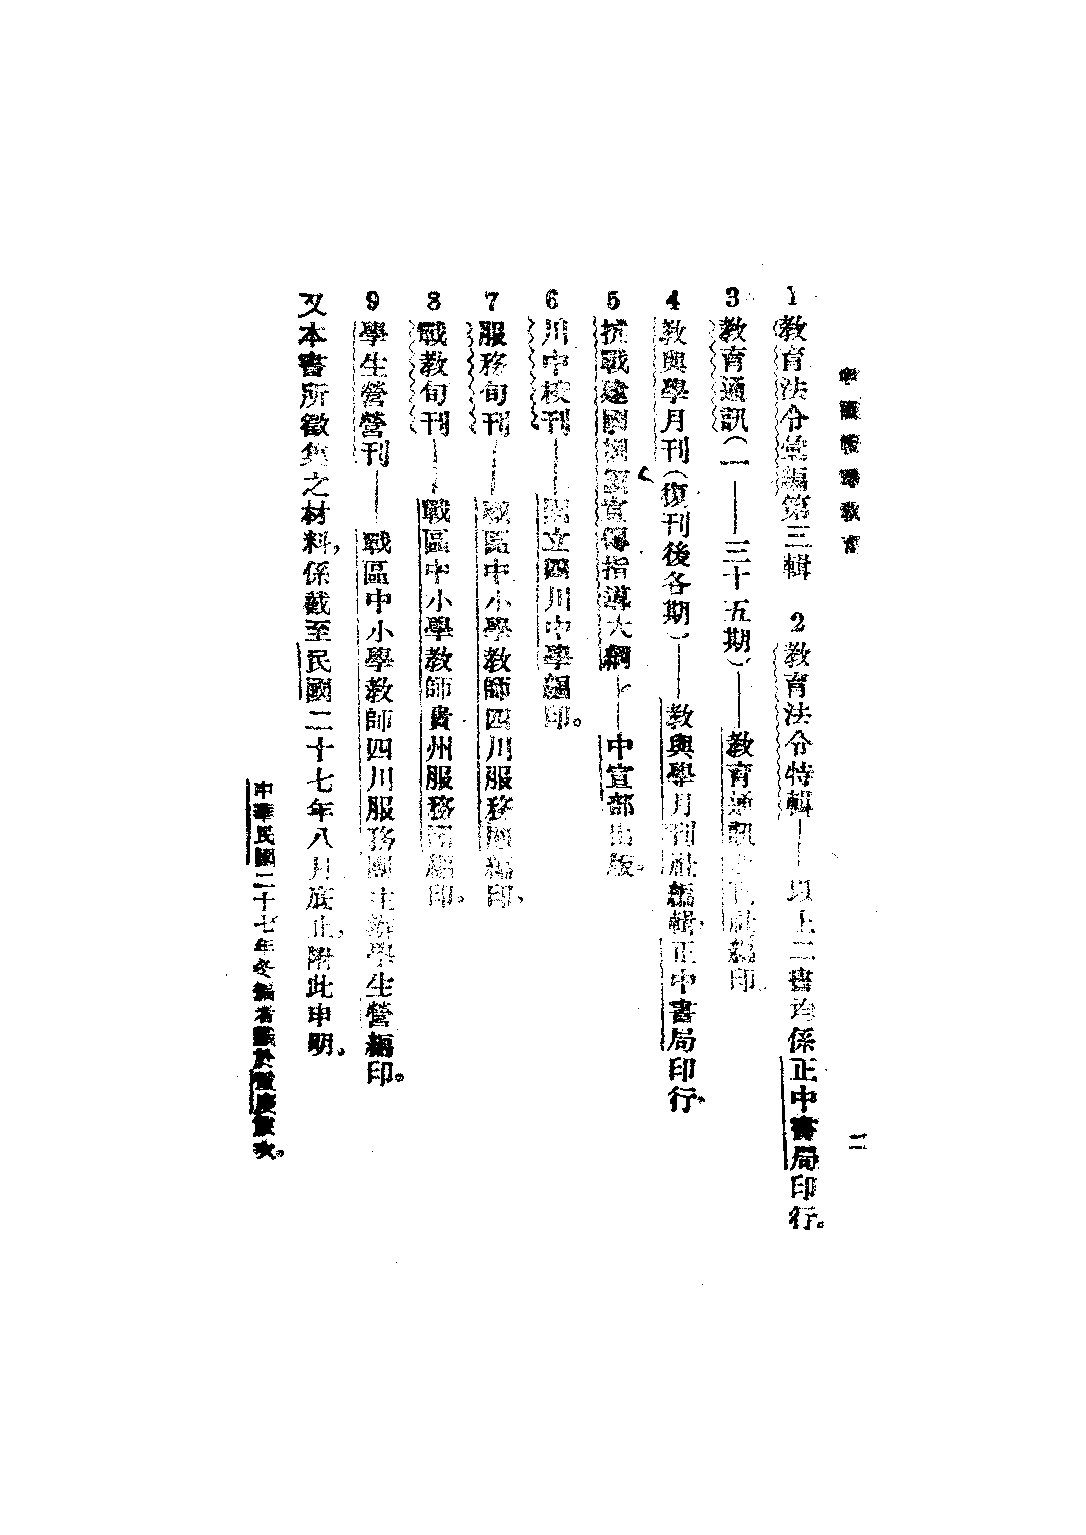 中國戰時教育
二
1 教育法令彙編第三輯　2 教育法令特輯——以上二書均係正中書局印行。
3 教育通訊(一——三十五期)——教育通訊社編印
4 教與學月刊(復刊後各期)——教與學月刊社編輯，正中書局印行、
5 抗戰建國綱領宣傳指導大綱——中宣部出版。
6 川中校刊——國立四川中學編印。
7 服務旬刊——戰區中小學教師四川服務團編印、
8 戰教旬刊——戰區中小學教師貴州服務團編印。
9 學生營營刊——戰區中小學教師四川服務團主辦學生營編印。
又本書所徵集之材料，係截至民國二十七年八月底止，附此申明。
中華民國二十七年冬編者識於重慶。